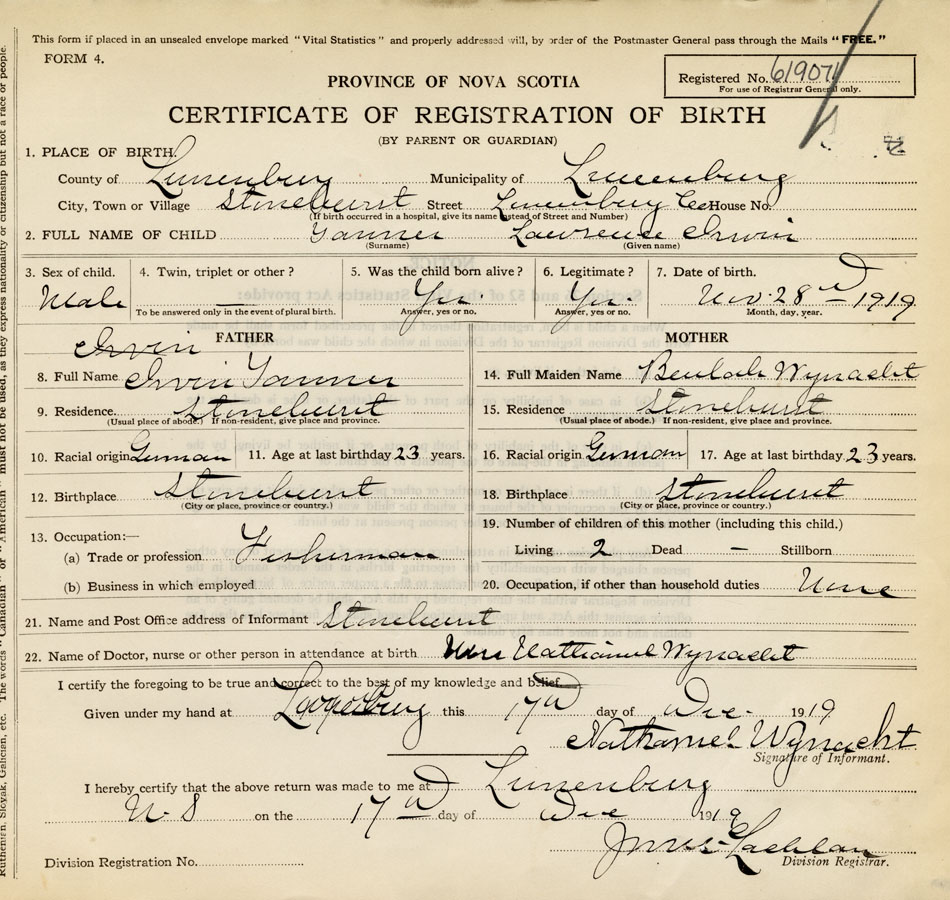 This form if placed in an unsealed envelope marked "Vital Statistics" and properly addressed will, by order of the Postmaster General pass through the Mails "FREE."
FORM 4.
Registered No. 619071
For use of Registrar General only.
PROVINCE OF NOVA SCOTIA
CERTIFICATE OF REGISTRATION OF BIRTH
(BY PARENT OR GUARDIAN)
1. PLACE OF BIRTH.
County of Lunenburg Municipality of Lunenburg
City, Town or Village Stonehurst Street Lunenburg Co House No.
(If birth occurred in a hospital, give its name instead of Street and Number)
2. FULL NAME OF CHILD Tanner Lawrence Irwin
(Surname) (Given name)
3. Sex of child. 4. Twin, triplet or other? 5. Was the child born alive? 6. Legitimate? 7. Date of birth.
Male — Yes. Yes. Nov. 28 1919
To be answered only in the event of plural birth. Answer, yes or no. Answer, yes or no. Month, day, year.
FATHER MOTHER
Irvin
8. Full Name Irvin Tanner 14. Full Maiden Name Beulah Wynacht
9. Residence. Stonehurst 15. Residence Stonehurst
(Usual place of abode.) If non-resident, give place and province. (Usual place of abode.) If non-resident, give place and province.
10. Racial origin German 11. Age at last birthday 23 years. 16. Racial origin German 17. Age at last birthday 23 years.
12. Birthplace Stonehurst 18. Birthplace Stonehurst
(City or place, province or country.) (City or place, province or country.)
13. Occupation:— 19. Number of children of this mother (including this child.)
(a) Trade or profession Fisherman Living 2 Dead — Stillborn
(b) Business in which employed 20. Occupation, if other than household duties None
21. Name and Post Office address of Informant Stonehurst
22. Name of Doctor, nurse or other person in attendance at birth Mrs Nathaniel Wynacht
I certify the foregoing to be true and correct to the best of my knowledge and belief
Given under my hand at Lunenburg this 17th day of Dec. 1919
Nathaniel Wynacht
Signature of Informant.
I hereby certify that the above return was made to me at Lunenburg
N. S on the 17th day of Dec 1919
Lachlan
Division Registrar.
Division Registration No.
Ruthenian, Slovak, Galician, etc. The words "Canadian" or "American" must not be used, as they express nationality or citizenship but not a race or people.